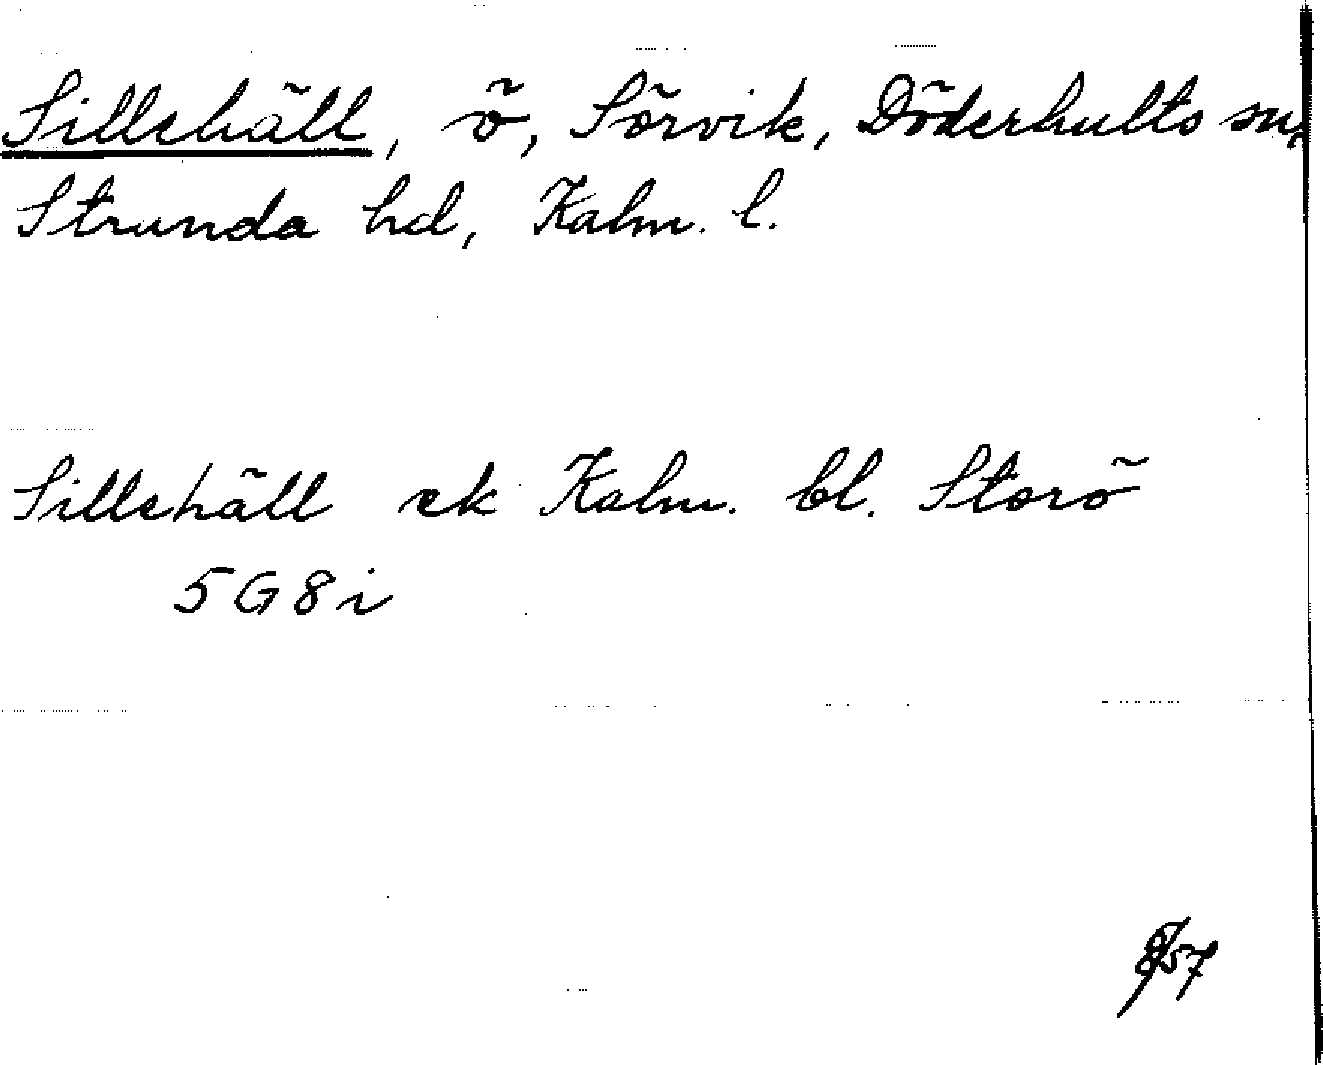 Sillehäll, ö, Sörvik, Döderhults sn,
Stranda hd, Kalm. l.
Sillehäll ek Kalm. bl. Storö
5G8i